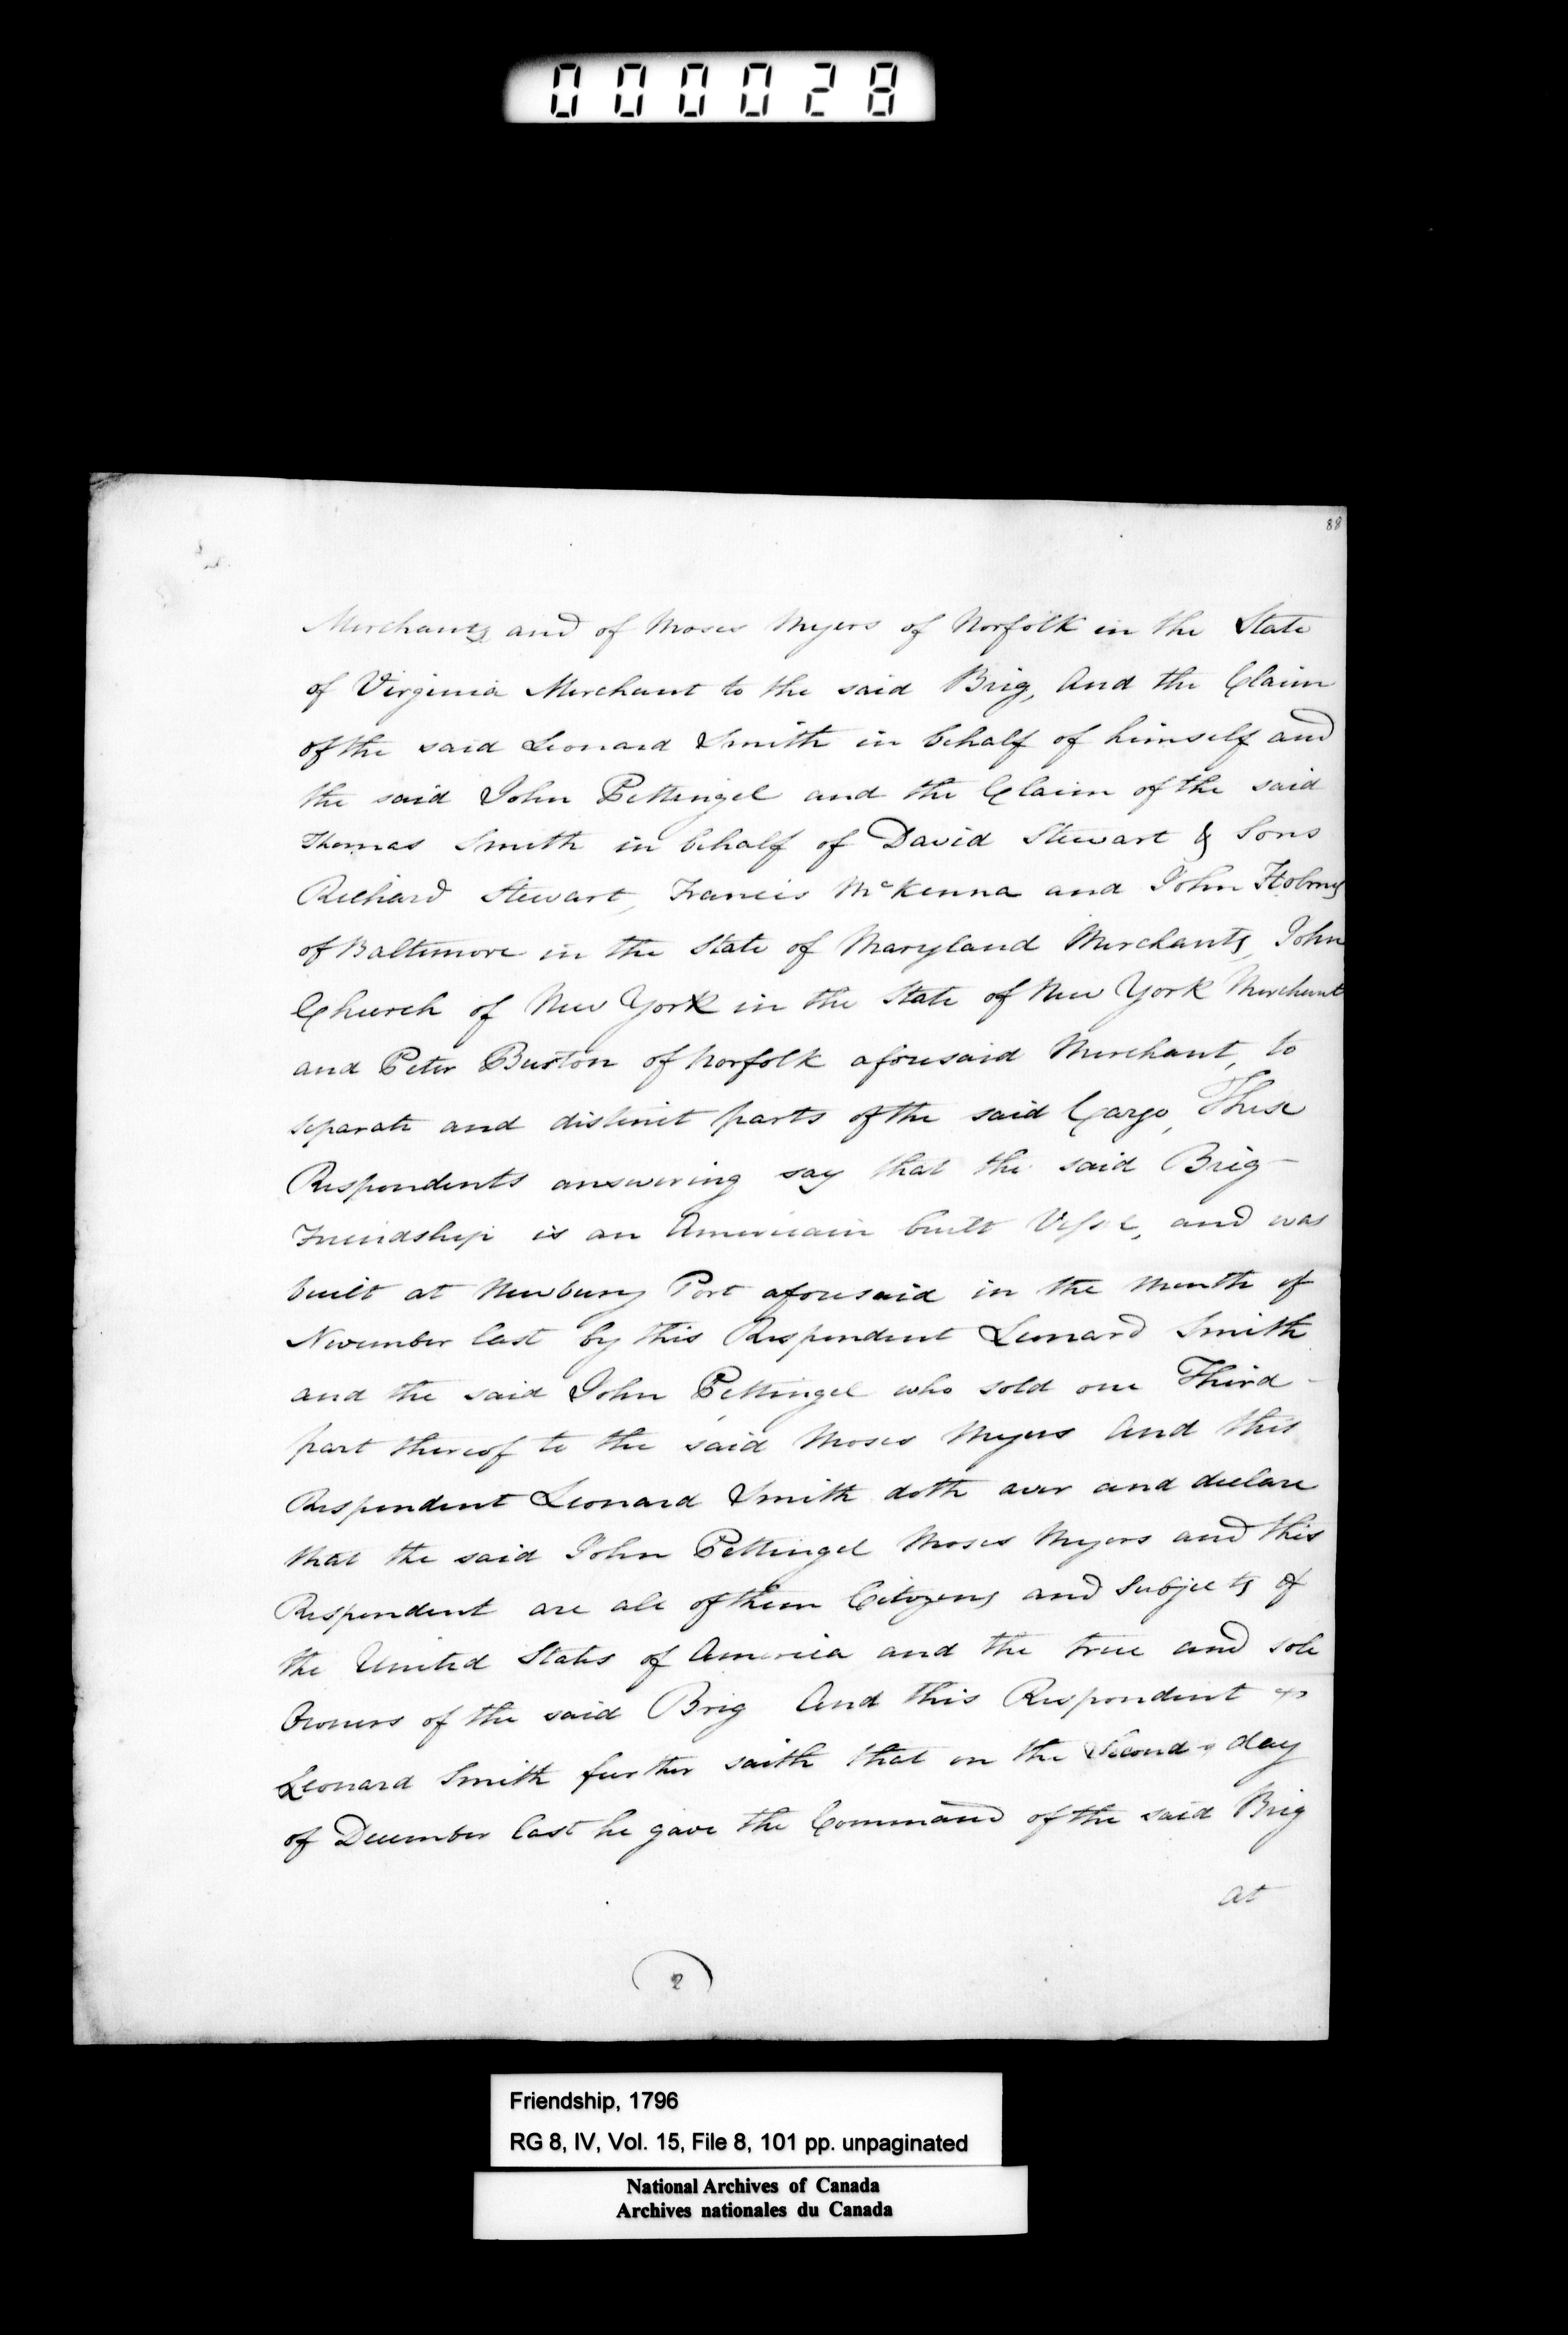 000028
88
Merchants and of Moses Myers of Norfolk in the State
of Virginia Merchant to the said Brig, And the Claim
of the said Leonard Smith in behalf of himself and
the said John Pettingel and the Claim of the said
Thomas Smith in behalf of David Stewart & Sons
Richard Stewart, Francis McKenna and John Holmes
of Baltimore in the State of Maryland Merchants, John
Church of New York in the State of New York Merchant
and Peter Burton of Norfolk aforesaid Merchant, to
separate and distinct parts of the said Cargo, These
Respondents answering say that the said Brig —
Friendship is an Americain built Vessel, and was
built at Newbury Port aforesaid in the Month of
November last by this Respondent Leonard Smith
and the said John Pettingel who sold one Third —
part thereof to the said Moses Myers And this
Respondent Leonard Smith doth aver and declare
that the said John Pettingel Moses Myers and this
Respondent are all of them Citizens and Subjects of
the United States of America and the true and sole
Owners of the said Brig And this Respondent
Leonard Smith further saith that on the Second day
of December last he gave the Command of the said Brig
at
2
Friendship, 1796
RG 8, IV, Vol. 15, File 8, 101 pp. unpaginated
National Archives of Canada
Archives nationales du Canada